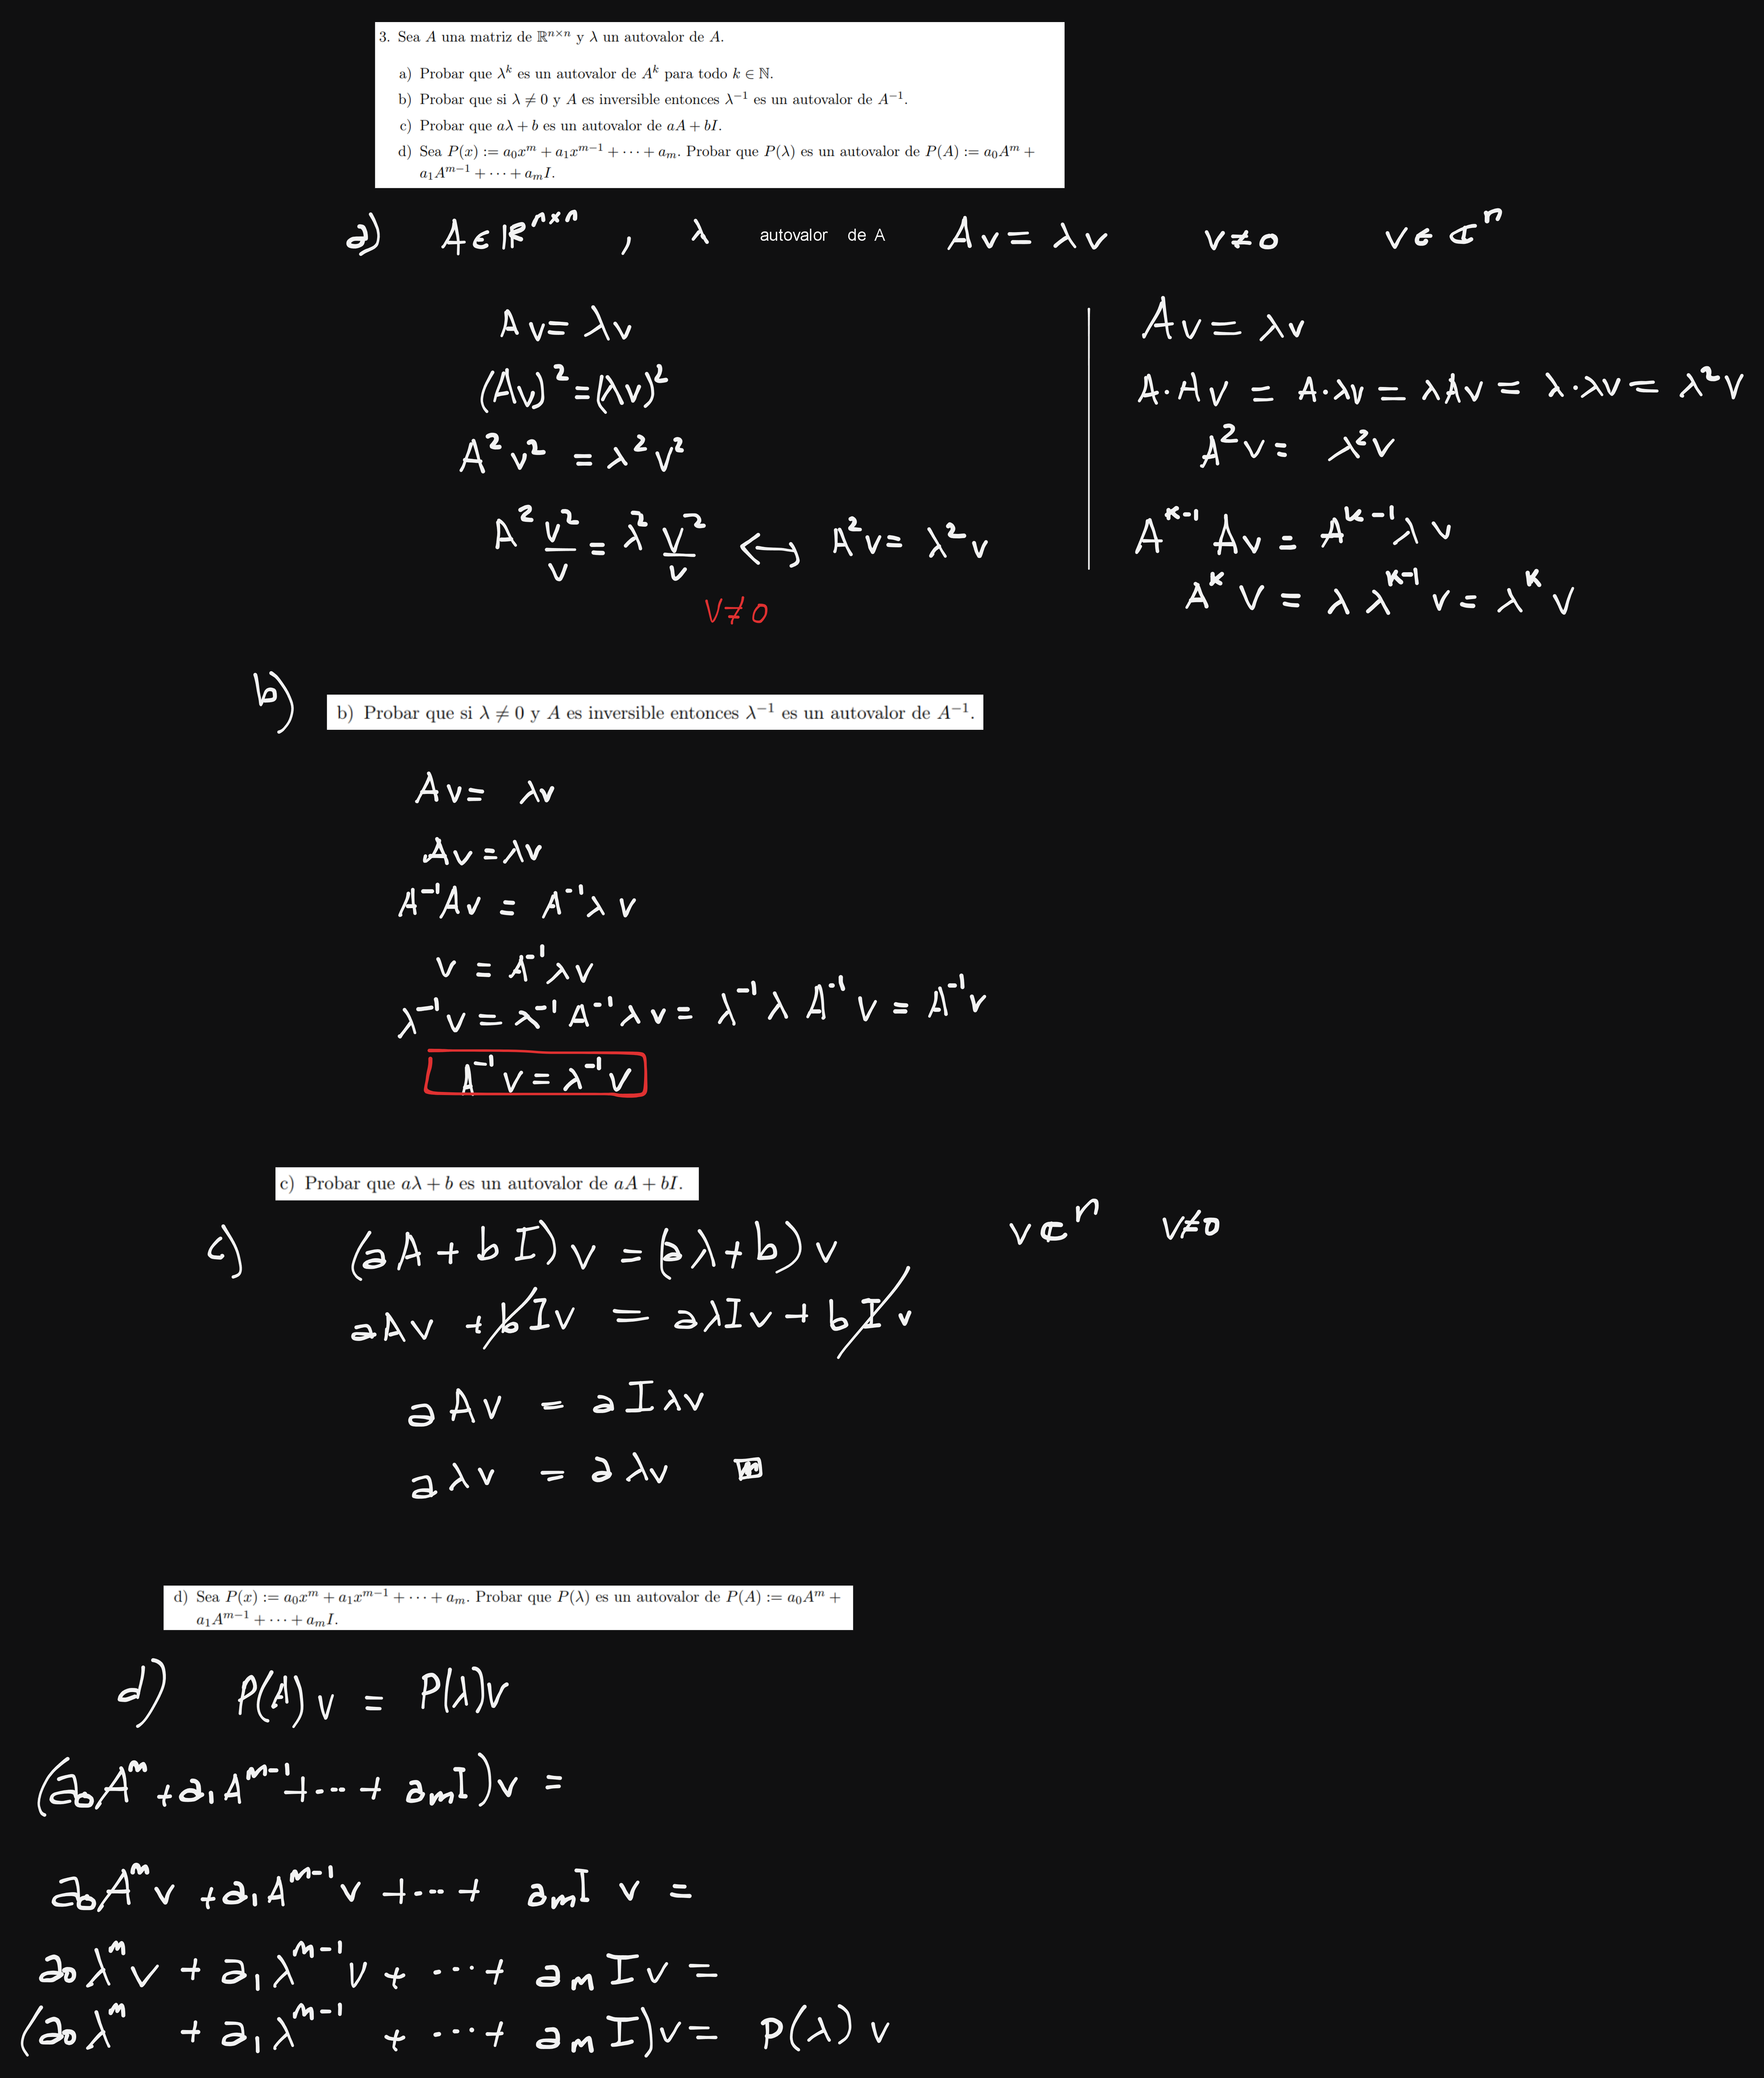 3. Sea A una matriz de ℝⁿˣⁿ y λ un autovalor de A.
a) Probar que λᵏ es un autovalor de Aᵏ para todo k ∈ ℕ.
b) Probar que si λ ≠ 0 y A es inversible entonces λ⁻¹ es un autovalor de A⁻¹.
c) Probar que aλ + b es un autovalor de aA + bI.
d) Sea P(x) := a₀xᵐ + a₁xᵐ⁻¹ + ⋯ + aₘ. Probar que P(λ) es un autovalor de P(A) := a₀Aᵐ +
a₁Aᵐ⁻¹ + ⋯ + aₘI.
a) A ∈ ℝⁿˣⁿ , λ autovalor de A Av = λv v ≠ 0 v ∈ ℂⁿ
Av = λv
(Av)² = (λv)²
A²v² = λ²v²
A² v²/v = λ² v²/v ↔ A²v = λ²v
v ≠ 0
Av = λv
A·Av = A·λv = λAv = λ·λv = λ²v
A²v = λ²v
Aᵏ⁻¹ Av = Aᵏ⁻¹ λv
Aᵏ v = λ λᵏ⁻¹ v = λᵏ v
b)
b) Probar que si λ ≠ 0 y A es inversible entonces λ⁻¹ es un autovalor de A⁻¹.
Av = λv
Av = λv
A⁻¹Av = A⁻¹λv
v = A⁻¹λv
λ⁻¹v = λ⁻¹A⁻¹λv = λ⁻¹λA⁻¹v = A⁻¹v
A⁻¹v = λ⁻¹v
c) Probar que aλ + b es un autovalor de aA + bI.
c) (aA + bI)v = (aλ + b)v v ℂⁿ v ≠ 0
aAv + bIv = aλIv + bIv
aAv = aIλv
aλv = aλv
d) Sea P(x) := a₀xᵐ + a₁xᵐ⁻¹ + ⋯ + aₘ. Probar que P(λ) es un autovalor de P(A) := a₀Aᵐ +
a₁Aᵐ⁻¹ + ⋯ + aₘI.
d) P(A)v = P(λ)v
(a₀Aᵐ + a₁Aᵐ⁻¹ + ⋯ + aₘI)v =
a₀Aᵐv + a₁Aᵐ⁻¹v + ⋯ + aₘI v =
a₀λᵐv + a₁λᵐ⁻¹v + ⋯ + aₘIv =
(a₀λᵐ + a₁λᵐ⁻¹ + ⋯ + aₘI)v = P(λ)v